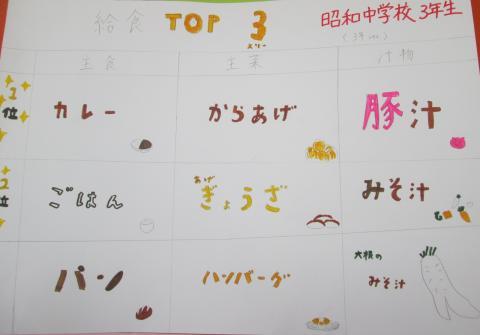 給食 TOP 3
スリー
昭和中学校 3年生
主食 主菜 汁物
1位 カレー からあげ 豚汁
2位 ごはん あげぎょうざ みそ汁
パン ハンバーグ 大根のみそ汁